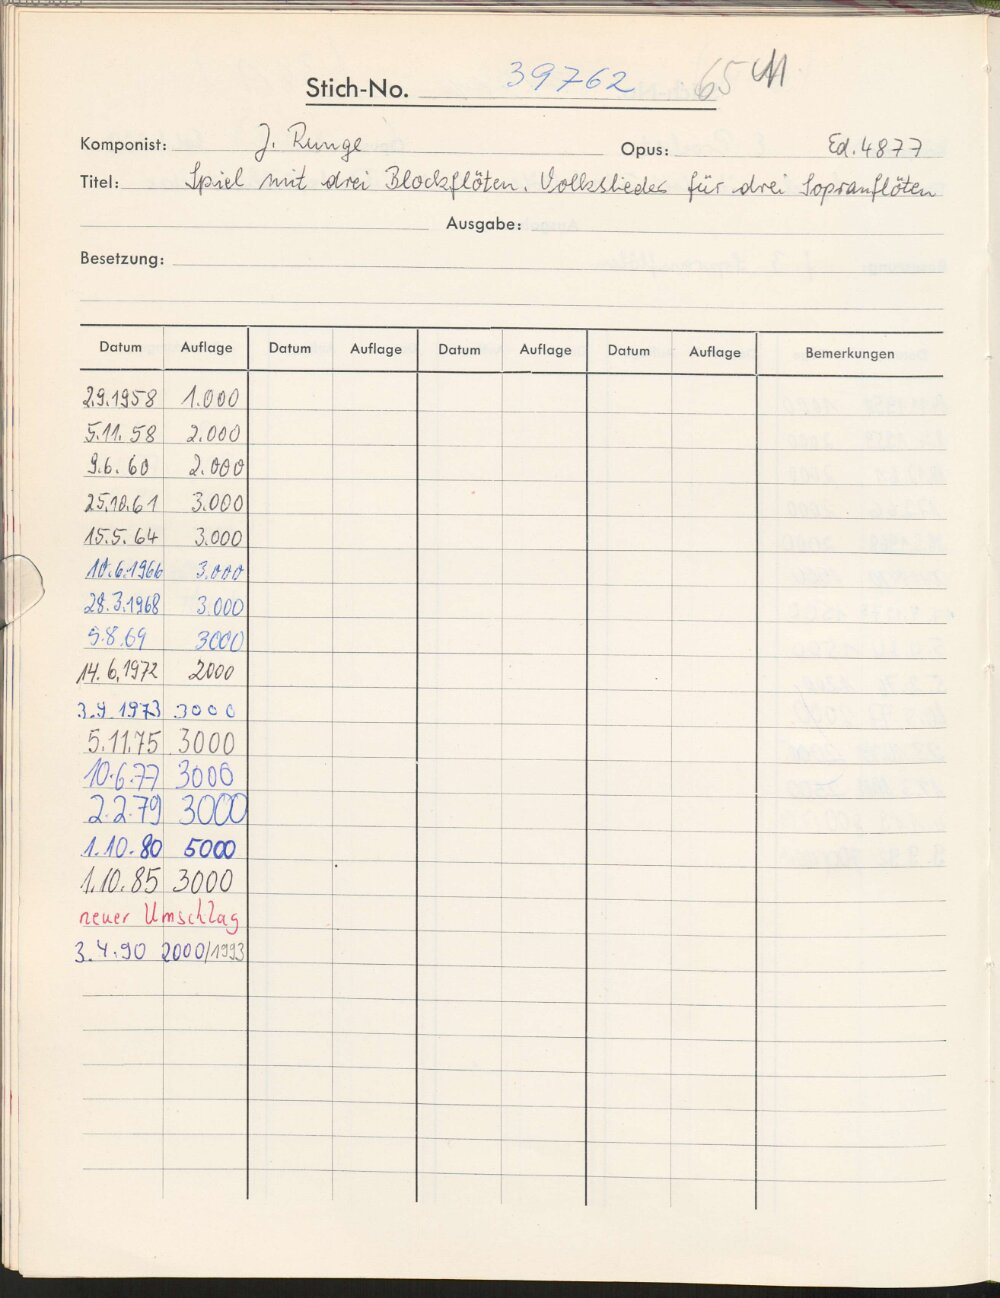 Stich-No. 39762 65
Komponist: J. Runge Opus: Ed. 4877
Titel: Spiel mit drei Blockflöten. Volkslieder für drei Sopranflöten
Ausgabe:
Besetzung:
Datum Auflage Datum Auflage Datum Auflage Datum Auflage Bemerkungen
2.9.1958 1.000
5.11.58 2.000
9.6.60 2.000
25.10.61 3.000
15.5.64 3.000
10.6.1966 3.000
28.3.1968 3.000
5.8.69 3000
14.6.1972 2000
3.9.1973 3000
5.11.75 3000
10.6.77 3000
2.2.79 3000
1.10.80 5000
1.10.85 3000
neuer Umschlag
3.4.90 2000/1993